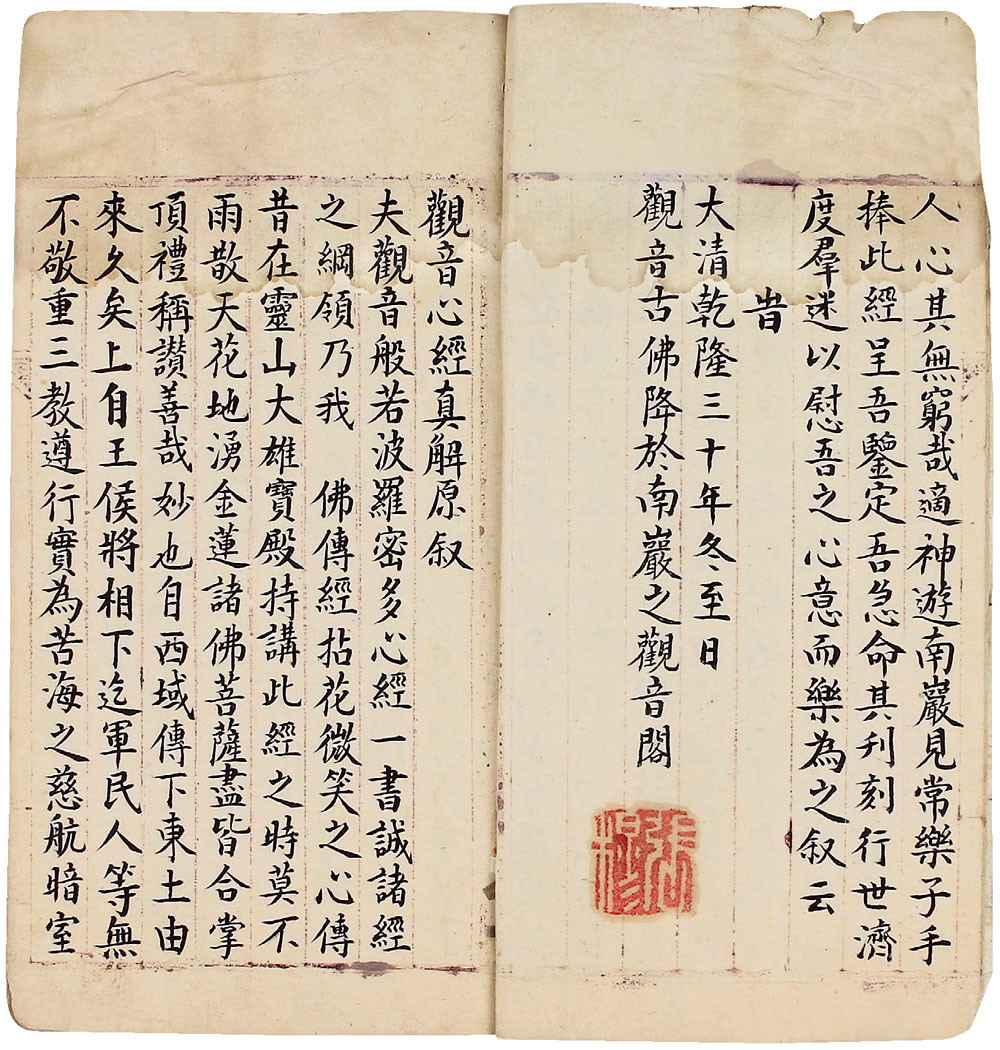 人心其無窮哉適神遊南巖見常樂子手
捧此經呈吾鑒定吾急命其刋刻行世濟
度羣迷以慰吾之心意而樂為之叙云
旹
大清乾隆三十年冬至日
觀音古佛降於南巖之觀音閣
觀音心經真解原叙
夫觀音般若波羅密多心經一書誠諸經
之綱領乃我 佛傳經拈花微笑之心傳
昔在靈山大雄寶殿持講此經之時莫不
雨散天花地湧金蓮諸佛菩薩盡皆合掌
頂禮稱讃善哉妙也自西域傳下東土由
來久矣上自王侯將相下迄軍民人等無
不敬重三教遵行實為苦海之慈航暗室